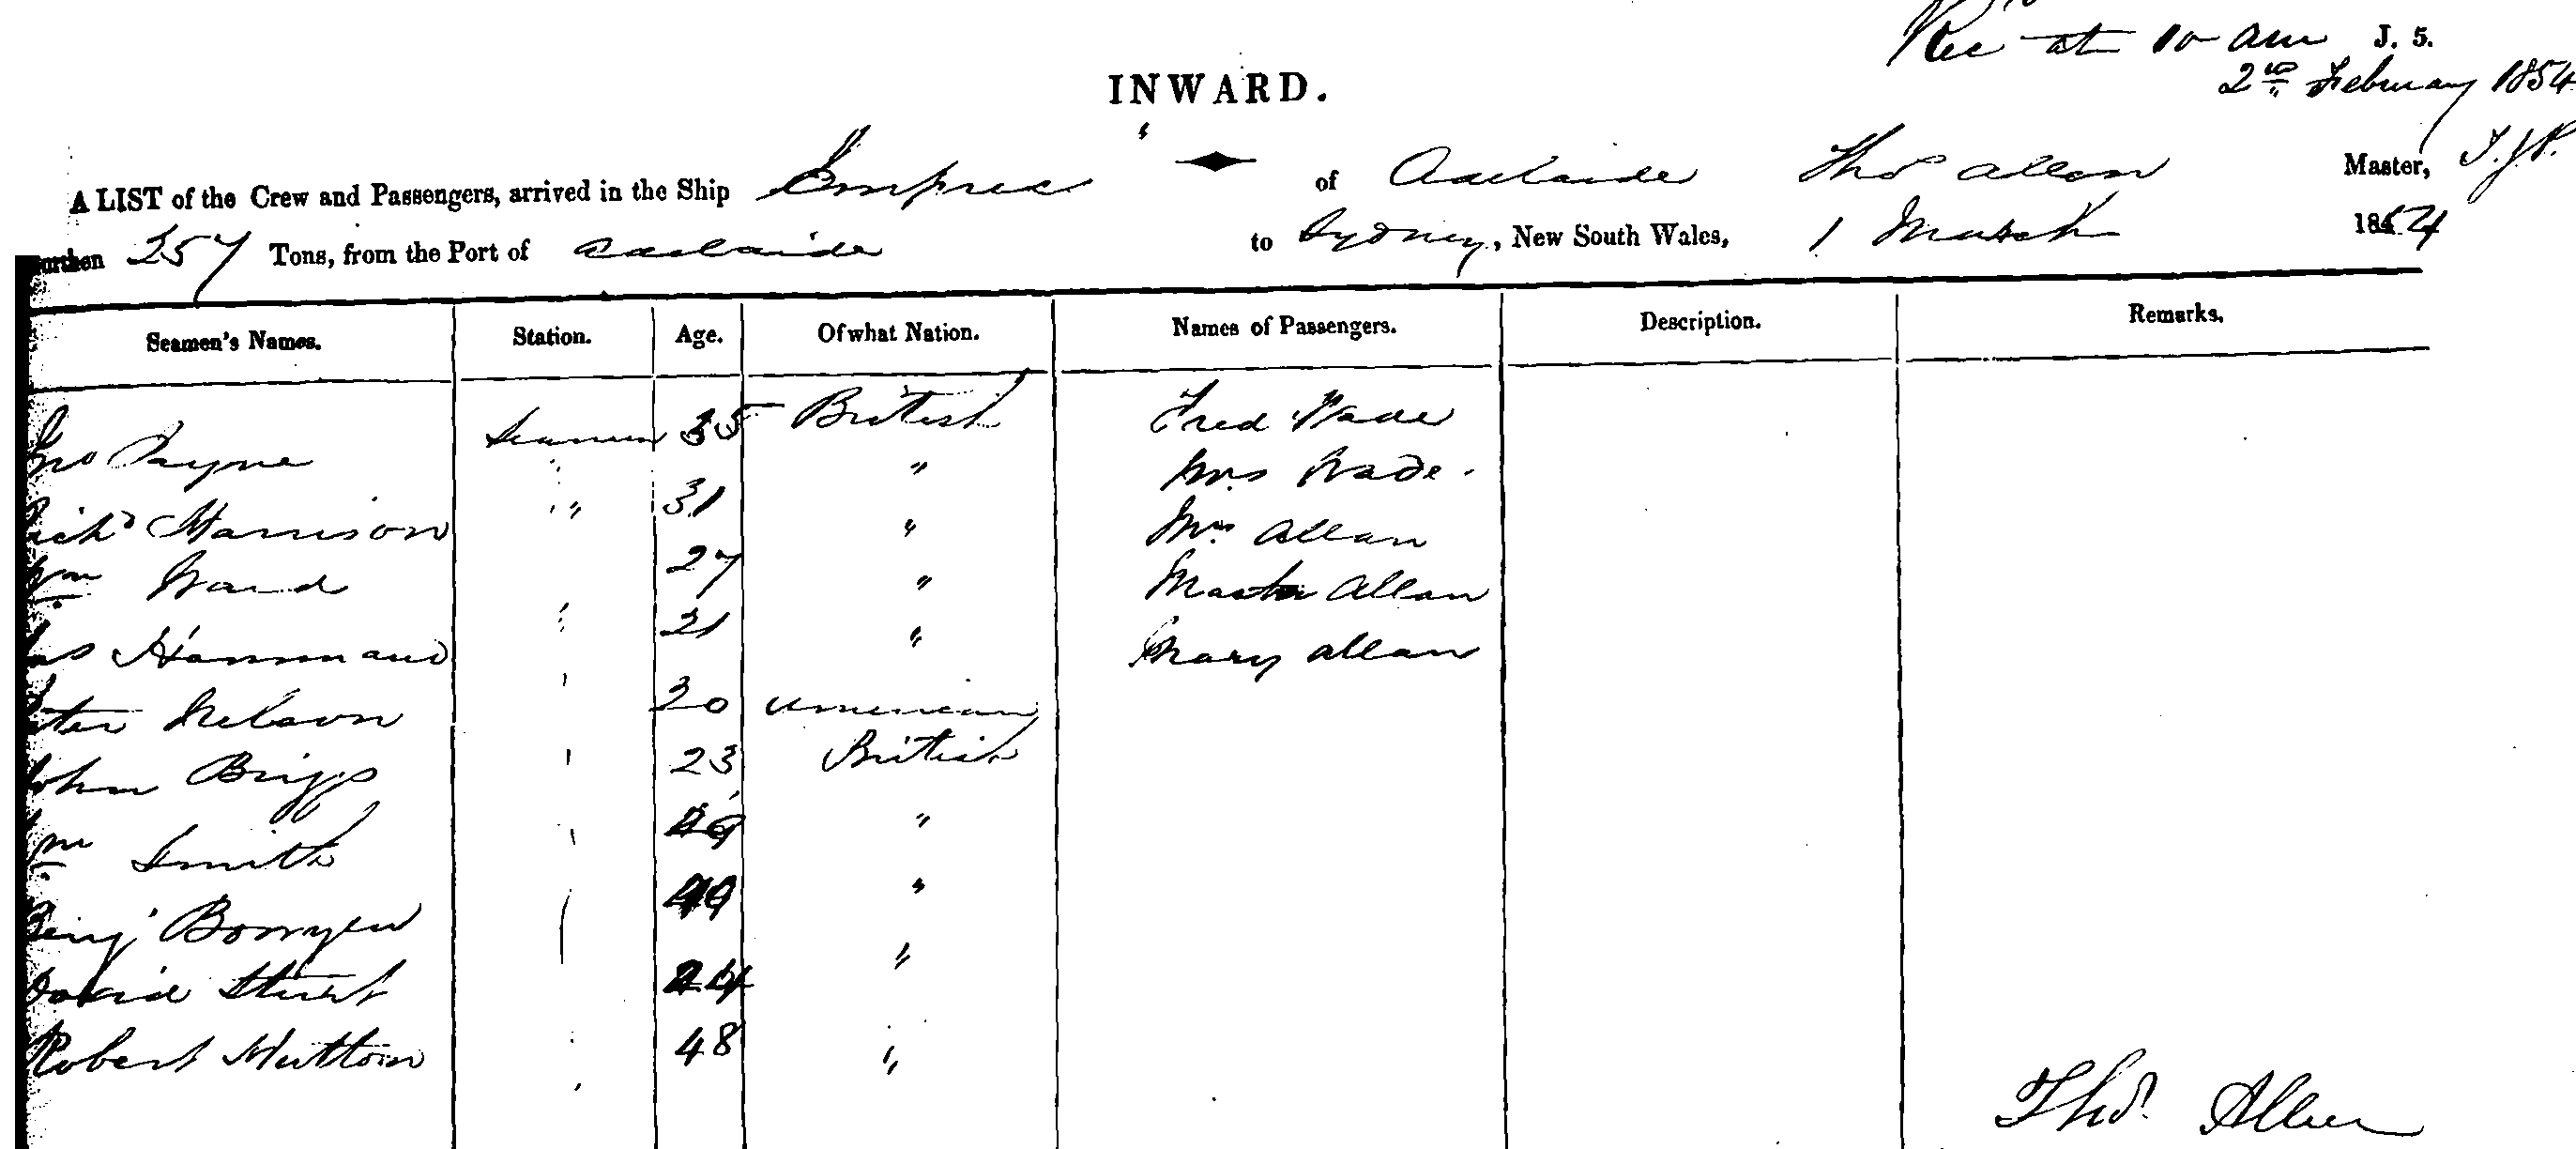 Rec at 10 am J. 5.
2nd February 1854
INWARD.
A LIST of the Crew and Passengers, arrived in the Ship Empree of Adelaide Thos Allen Master, T.J.P.
Burthen 257 Tons, from the Port of Adelaide to Sydney, New South Wales, 1 March 1854
Seamen's Names. Station. Age. Of what Nation. Names of Passengers. Description. Remarks.
Jno Payne Seamen 35 British Fred Wade
Richd Harrison " 31 " Mrs Wade.
Wm Ward 27 " Mrs Allan
Hammand " 21 " Master Allan
Peter Nelson 20 American Mary Allan
John Briggs 23 British
Wm Smith "
Benj Bowyer 49 "
David Sturt 24 "
Robert Hutton 48 "
Thos. Allen